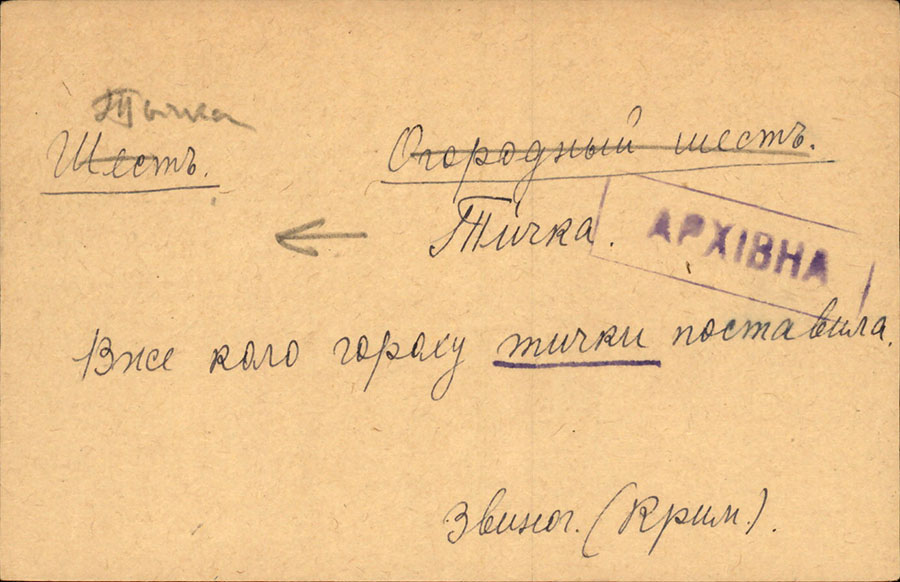 Тычка
Шестъ. Огородный шестъ.
Тичка. АРХІВНА
Вже коло гороху тички поставила.
Звиног. (Крим.).